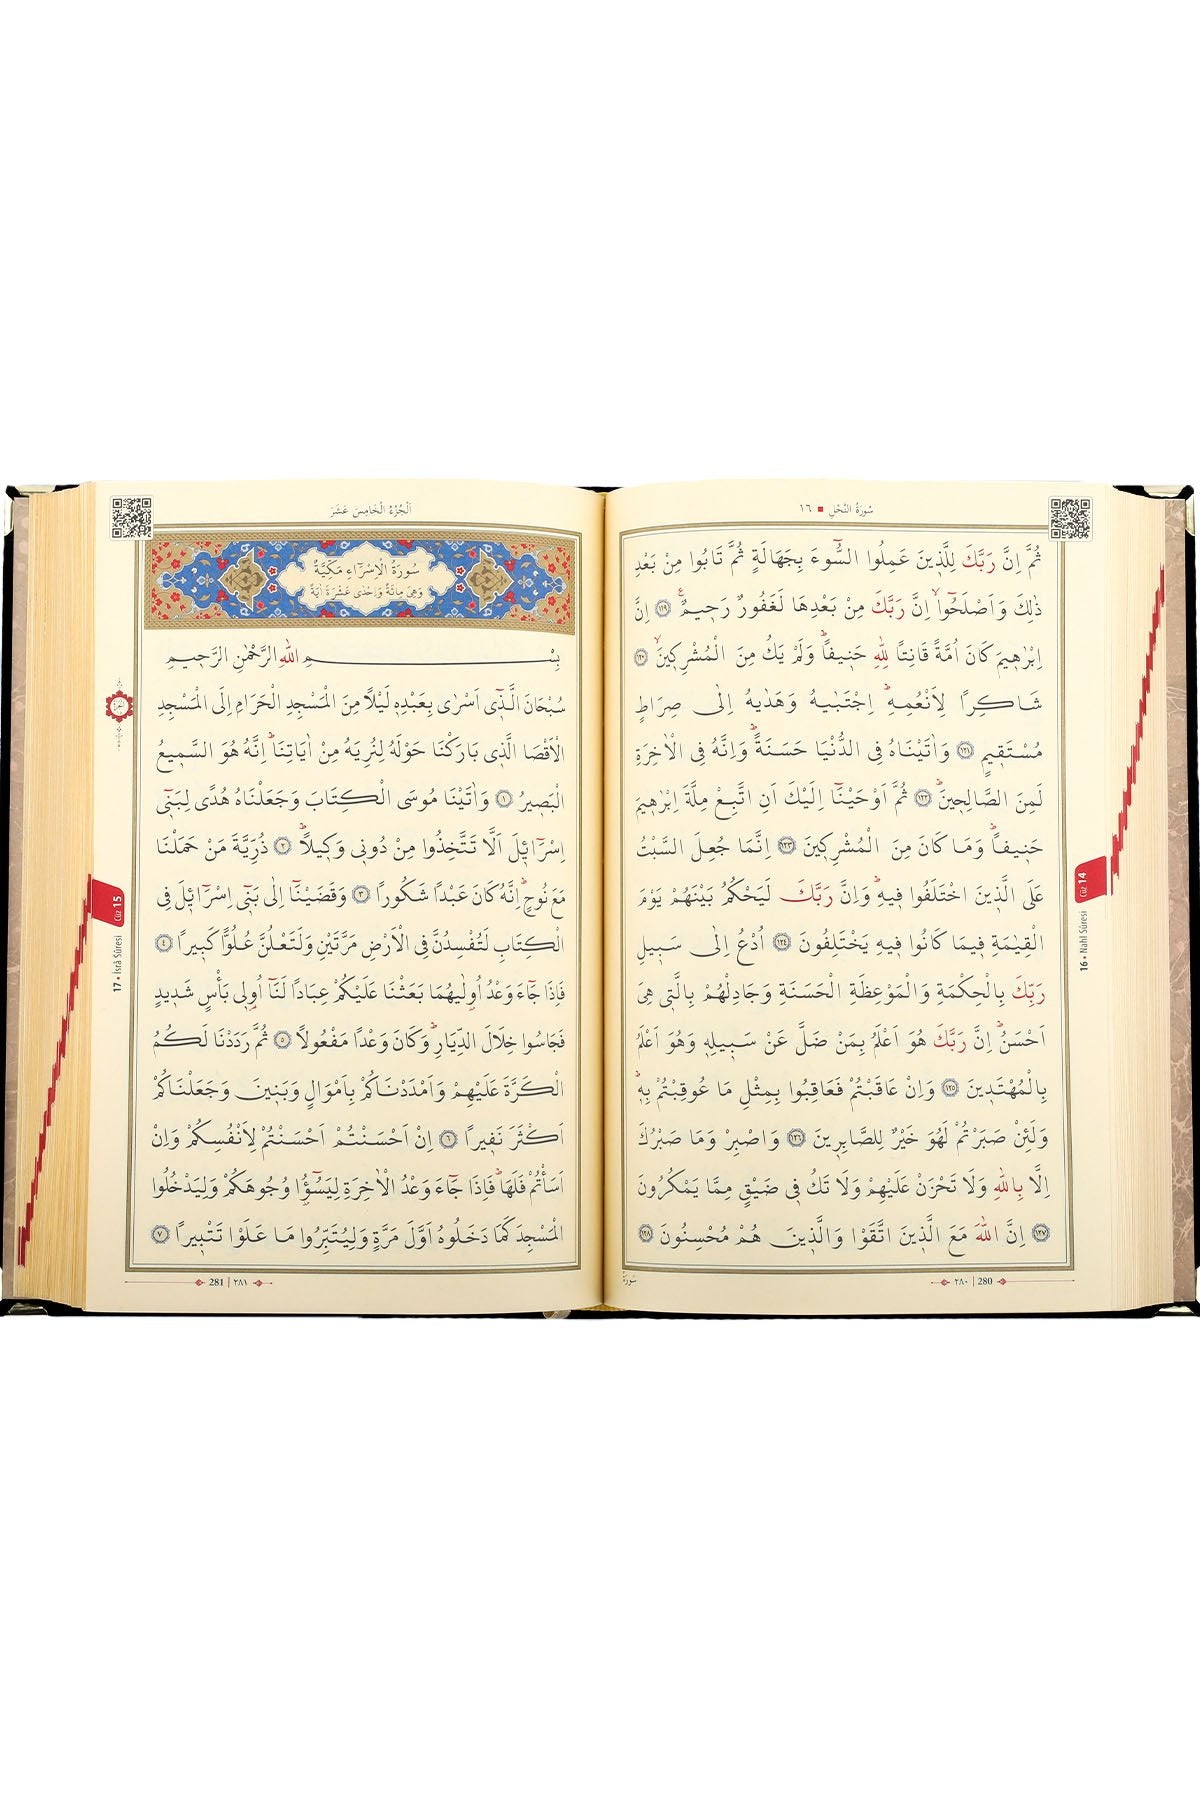 سُورَةُ النَّحْلِ ■ ١٦
ثُمَّ اِنَّ رَبَّكَ لِلَّذ۪ينَ عَمِلُوا السُّٓوءَ بِجَهَالَةٍ ثُمَّ تَابُوا مِنْ بَعْدِ
ذٰلِكَ وَاَصْلَحُٓواۙ اِنَّ رَبَّكَ مِنْ بَعْدِهَا لَغَفُورٌ رَح۪يمٌ۟ ﴿١١٩﴾ اِنَّ
اِبْرٰه۪يمَ كَانَ اُمَّةً قَانِتًا لِلّٰهِ حَن۪يفًاۜ وَلَمْ يَكُ مِنَ الْمُشْرِك۪ينَۙ ﴿١٢٠﴾
شَاكِرًا لِاَنْعُمِهِۜ اِجْتَبٰيهُ وَهَدٰيهُ اِلٰى صِرَاطٍ
مُسْتَق۪يمٍ ﴿١٢١﴾ وَاٰتَيْنَاهُ فِي الدُّنْيَا حَسَنَةًۜ وَاِنَّهُ فِي الْاٰخِرَةِ
لَمِنَ الصَّالِح۪ينَۜ ﴿١٢٢﴾ ثُمَّ اَوْحَيْنَٓا اِلَيْكَ اَنِ اتَّبِعْ مِلَّةَ اِبْرٰه۪يمَ
حَن۪يفًاۜ وَمَا كَانَ مِنَ الْمُشْرِك۪ينَ ﴿١٢٣﴾ اِنَّمَا جُعِلَ السَّبْتُ
عَلَى الَّذ۪ينَ اخْتَلَفُوا ف۪يهِۜ وَاِنَّ رَبَّكَ لَيَحْكُمُ بَيْنَهُمْ يَوْمَ
الْقِيٰمَةِ ف۪يمَا كَانُوا ف۪يهِ يَخْتَلِفُونَ ﴿١٢٤﴾ اُدْعُ اِلٰى سَب۪يلِ
رَبِّكَ بِالْحِكْمَةِ وَالْمَوْعِظَةِ الْحَسَنَةِ وَجَادِلْهُمْ بِالَّت۪ي هِيَ
اَحْسَنُۜ اِنَّ رَبَّكَ هُوَ اَعْلَمُ بِمَنْ ضَلَّ عَنْ سَب۪يلِه۪ وَهُوَ اَعْلَمُ
بِالْمُهْتَد۪ينَ ﴿١٢٥﴾ وَاِنْ عَاقَبْتُمْ فَعَاقِبُوا بِمِثْلِ مَا عُوقِبْتُمْ بِه۪ۜ
وَلَئِنْ صَبَرْتُمْ لَهُوَ خَيْرٌ لِلصَّابِر۪ينَ ﴿١٢٦﴾ وَاصْبِرْ وَمَا صَبْرُكَ
اِلَّا بِاللّٰهِ وَلَا تَحْزَنْ عَلَيْهِمْ وَلَا تَكُ ف۪ي ضَيْقٍ مِمَّا يَمْكُرُونَ
﴿١٢٧﴾ اِنَّ اللّٰهَ مَعَ الَّذ۪ينَ اتَّقَوْا وَالَّذ۪ينَ هُمْ مُحْسِنُونَ ﴿١٢٨﴾
280 | ٢٨٠
سُورَةُ
Cüz 14
16 • Nahl Sûresi
اَلْجُزْءُ الْخَامِسَ عَشَرَ
سُورَةُ الْاِسْرَٓاءِ مَكِّيَّةٌ
وَهِيَ مِائَةٌ وَاِحْدٰى عَشْرَةَ اٰيَةً
بِسْمِ اللّٰهِ الرَّحْمٰنِ الرَّح۪يمِ
سُبْحَانَ الَّذ۪ٓي اَسْرٰى بِعَبْدِه۪ لَيْلًا مِنَ الْمَسْجِدِ الْحَرَامِ اِلَى الْمَسْجِدِ
الْاَقْصَا الَّذ۪ي بَارَكْنَا حَوْلَهُ لِنُرِيَهُ مِنْ اٰيَاتِنَاۜ اِنَّهُ هُوَ السَّم۪يعُ
الْبَص۪يرُ ﴿١﴾ وَاٰتَيْنَا مُوسَى الْكِتَابَ وَجَعَلْنَاهُ هُدًى لِبَن۪ٓي
اِسْرَٓائ۪لَ اَلَّا تَتَّخِذُوا مِنْ دُون۪ي وَك۪يلًاۜ ﴿٢﴾ ذُرِّيَّةَ مَنْ حَمَلْنَا
مَعَ نُوحٍۜ اِنَّهُ كَانَ عَبْدًا شَكُورًا ﴿٣﴾ وَقَضَيْنَٓا اِلٰى بَن۪ٓي اِسْرَٓائ۪لَ فِي
الْكِتَابِ لَتُفْسِدُنَّ فِي الْاَرْضِ مَرَّتَيْنِ وَلَتَعْلُنَّ عُلُوًّا كَب۪يرًا ﴿٤﴾
فَاِذَا جَٓاءَ وَعْدُ اُو۫لٰيهُمَا بَعَثْنَا عَلَيْكُمْ عِبَادًا لَنَٓا اُو۬ل۪ي بَأْسٍ شَد۪يدٍ
فَجَاسُوا خِلَالَ الدِّيَارِۜ وَكَانَ وَعْدًا مَفْعُولًا ﴿٥﴾ ثُمَّ رَدَدْنَا لَكُمُ
الْكَرَّةَ عَلَيْهِمْ وَاَمْدَدْنَاكُمْ بِاَمْوَالٍ وَبَن۪ينَ وَجَعَلْنَاكُمْ
اَكْثَرَ نَف۪يرًا ﴿٦﴾ اِنْ اَحْسَنْتُمْ اَحْسَنْتُمْ لِاَنْفُسِكُمْ وَاِنْ
اَسَأْتُمْ فَلَهَاۜ فَاِذَا جَٓاءَ وَعْدُ الْاٰخِرَةِ لِيَسُٓؤُ۫ا وُجُوهَكُمْ وَلِيَدْخُلُوا
الْمَسْجِدَ كَمَا دَخَلُوهُ اَوَّلَ مَرَّةٍ وَلِيُتَبِّرُوا مَا عَلَوْا تَتْب۪يرًا ﴿٧﴾
281 | ٢٨١
Cüz 15
17 • İsrâ Sûresi